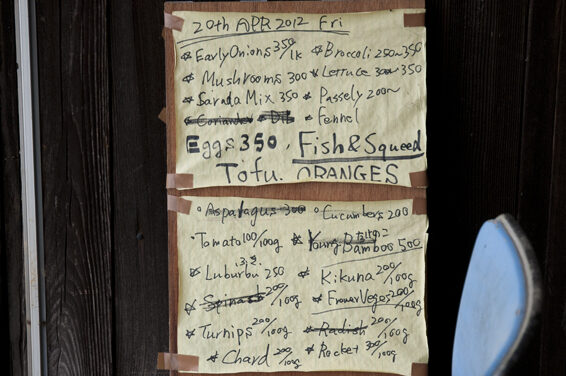 20th APR 2012 Fri
☆Early Onions 350/1k ☆Broccoli 250~350
☆Mushrooms 300 ☆Lettuce 300~350
☆Sarada Mix 350 ☆Passely 200~
☆Coriander ☆Dill ☆Fennel
Eggs 350, Fish & Squeed
Tofu. ORANGES
°Asparagus 300 °Cucumbers 200
°Tomato 100/100g ☆Young Bamboo 500 たけのこ
☆Luburbu 250 ☆Kikuna 200/100g
☆Spinach 200/100g ☆Frower Veges 200/100g
☆Turnips 200/100g ☆Radish 200/100g
☆Chard 200/100g ☆Rocket 300/100g